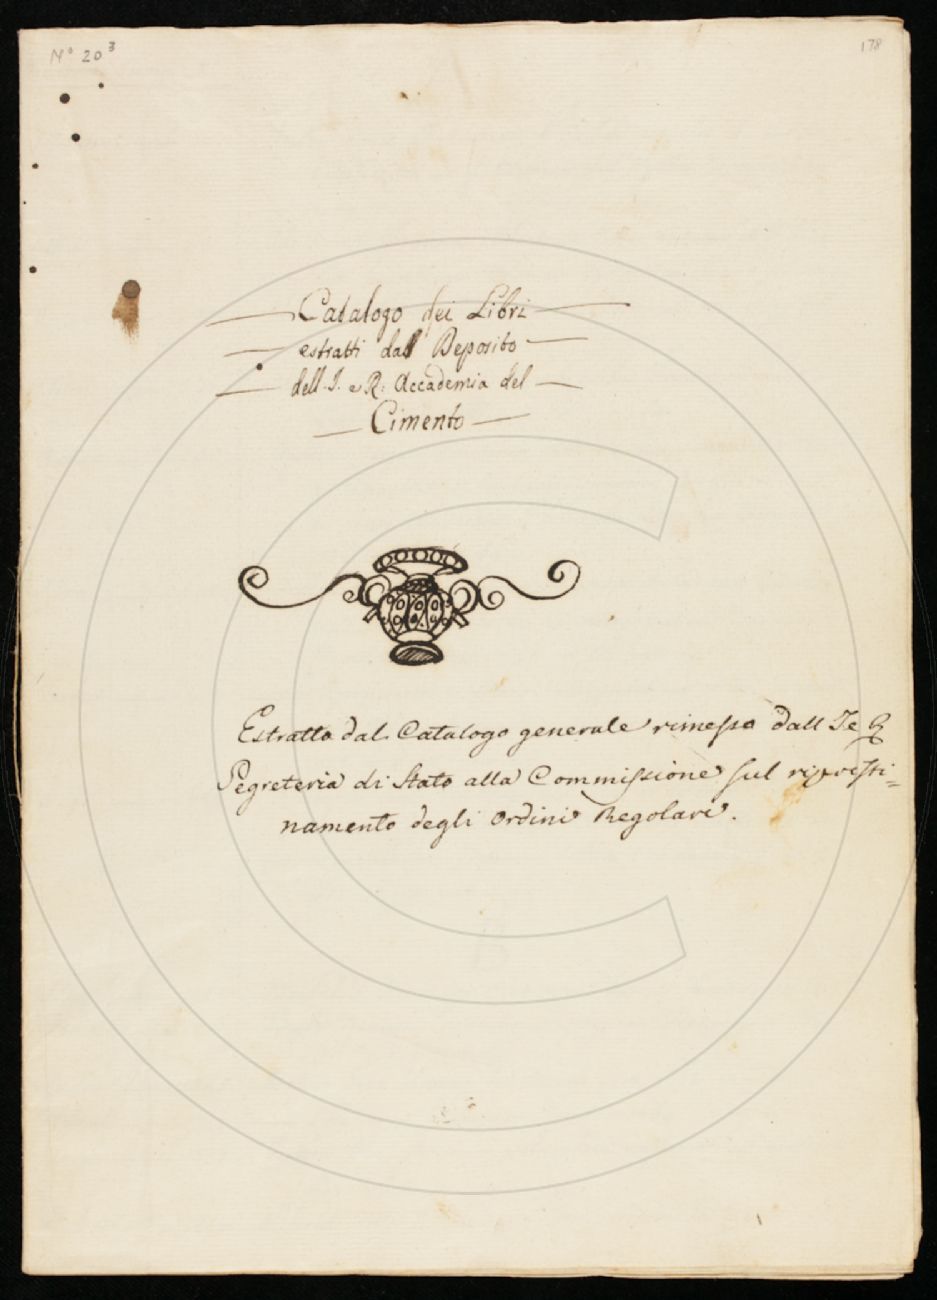 N° 20³
178
Catalogo dei Libri
estratti dal Deposito
dell. I. e R. Accademia del
Cimento
Estratto dal Catalogo generale rimesso dall I e R
Segreteria di Stato alla Commissione sul ripresti=
namento degli Ordini Regolari.